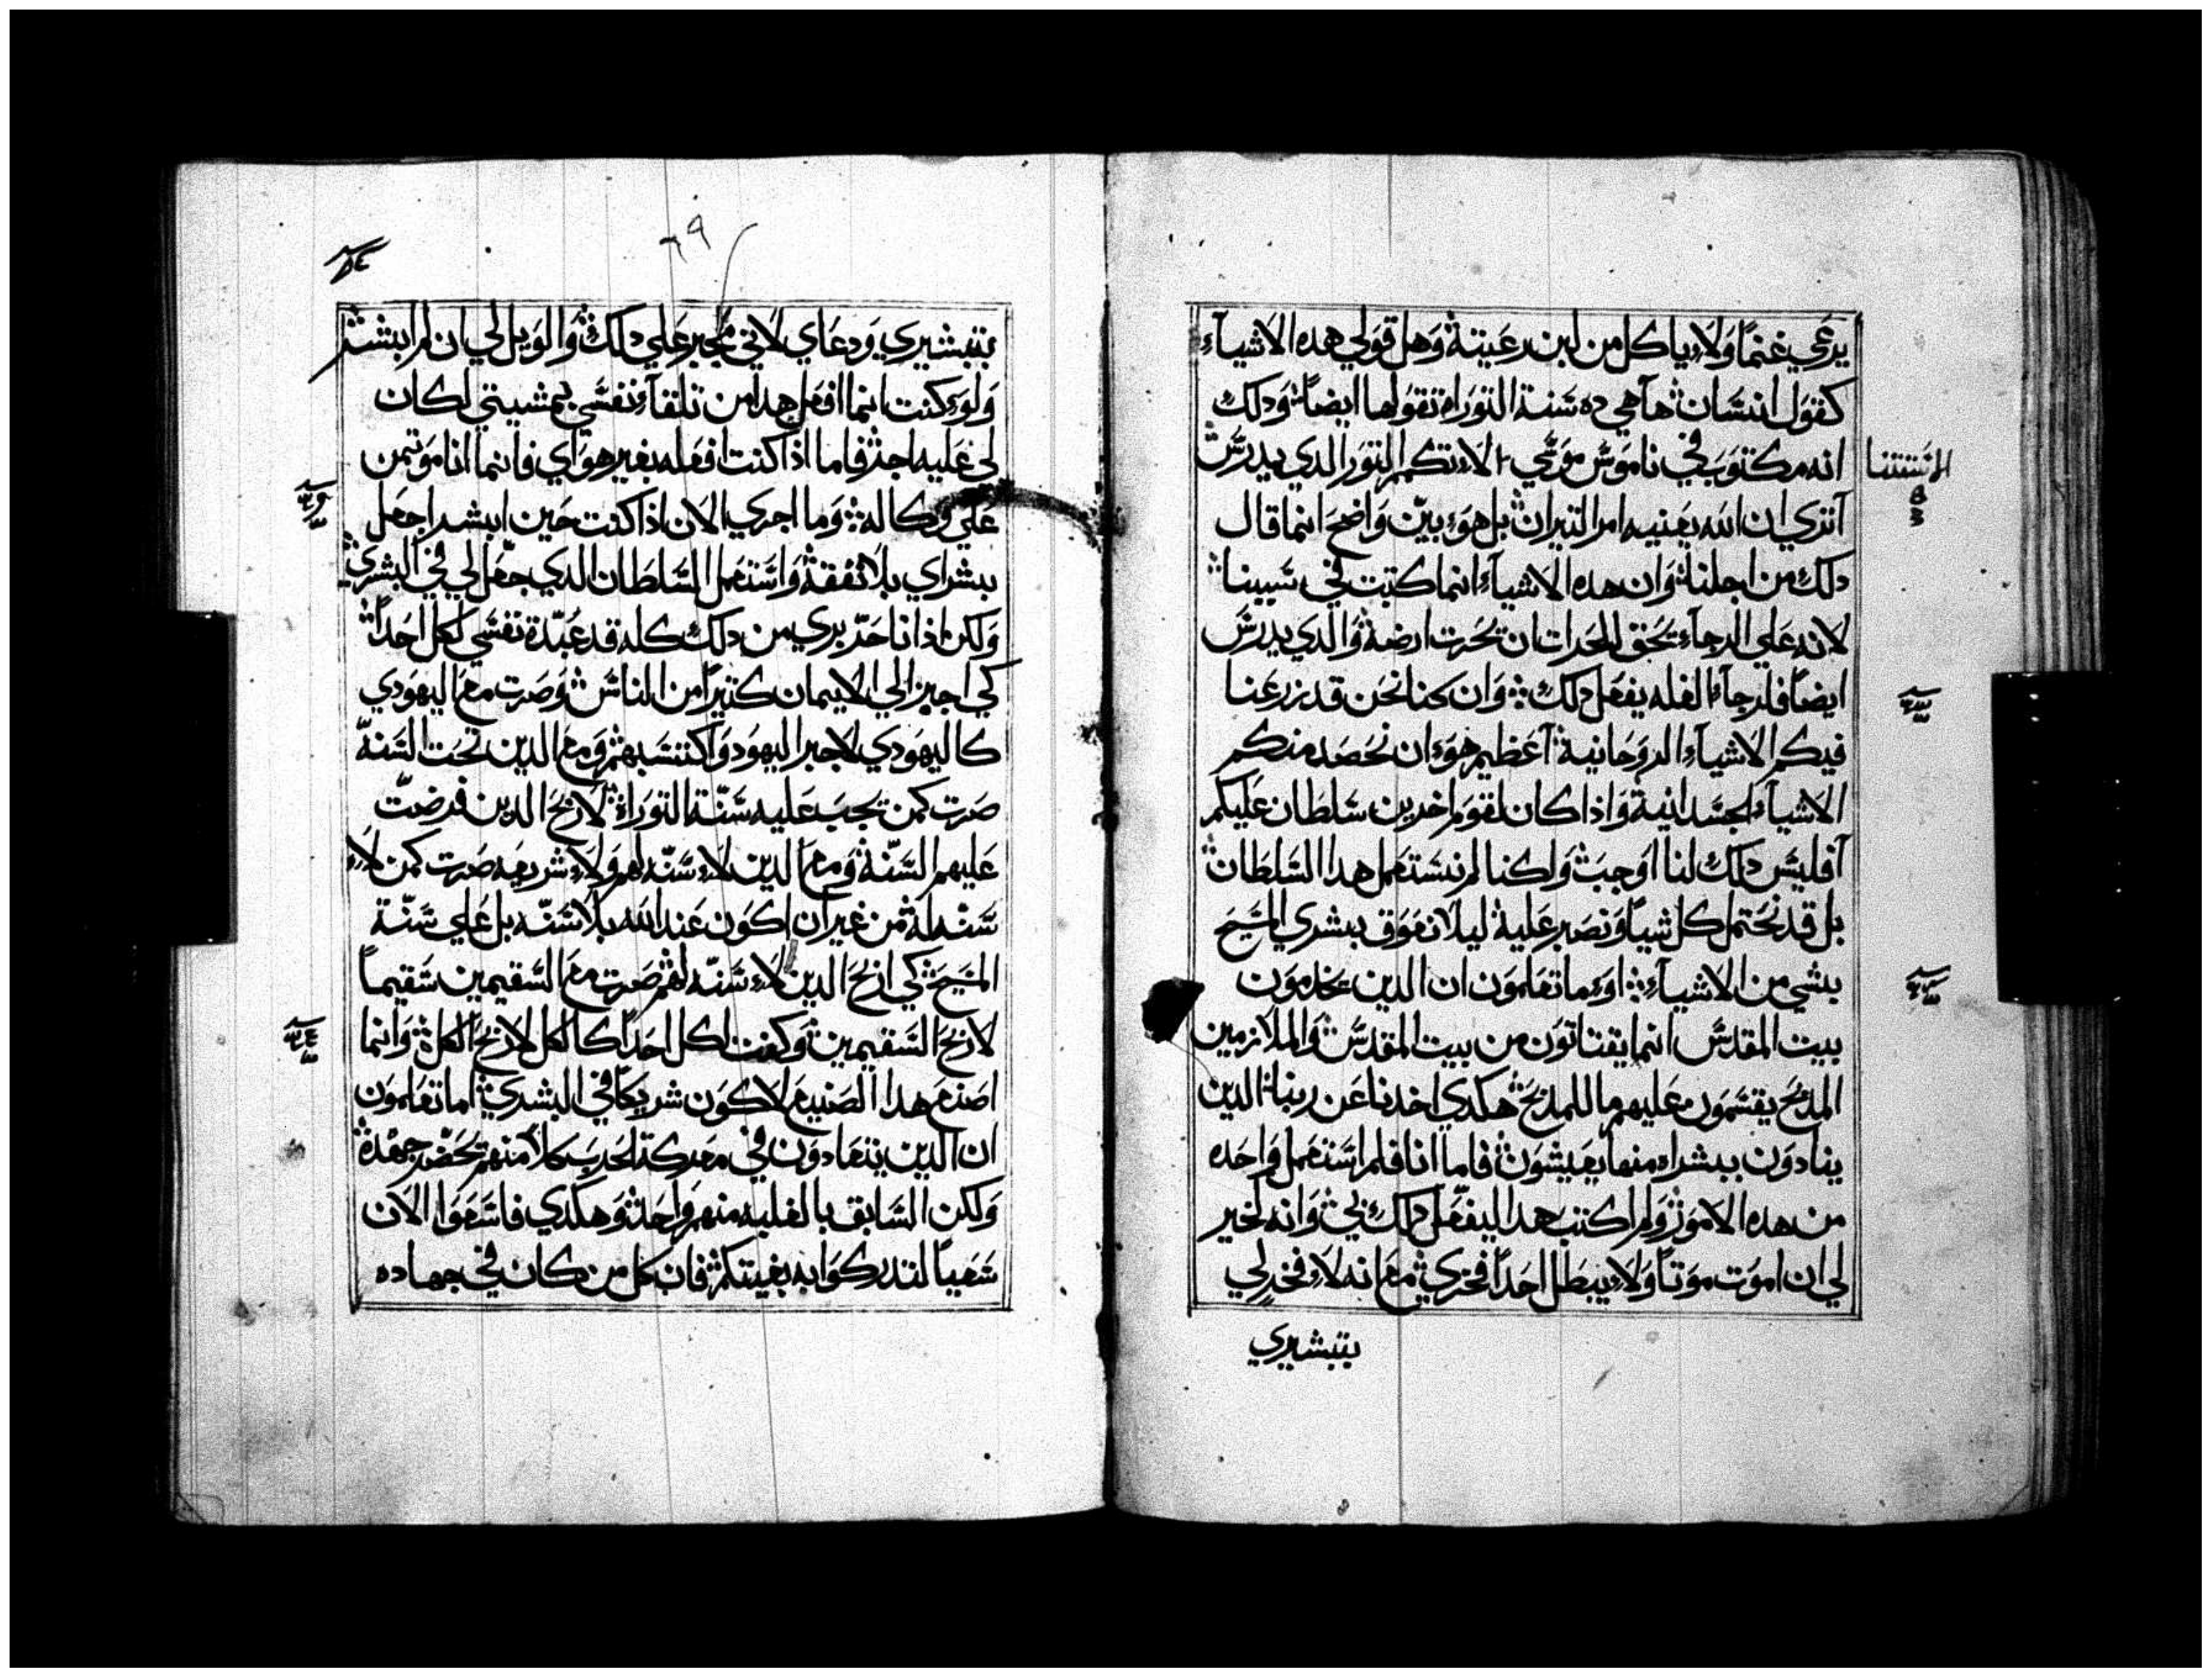 يرعي غنمًا وَلاَ ياكل من لبن رعيتهۛ وَهل قولي هده الاشيآء
كقول انسانۛ هآهي ده سَنة التورَاه تقولها ايضًاۛ وَدلك
انه مكتوب في ناموسَ موسَي الاَ تكم التور الدي يدرسَۛ
آتري ان الله يعنيه امر التيرانۛ بل هوَ بيّن وَاضح انما قال
دلك من اجلناۛ وَان هده الاشيآء انما كتبت في سَبيناۛ
لانه علي الرجآء يحق الحرات ان يحرت ارضهۛ وَالدي يدرسَ
ايضًا فلرجآء الغله يفعل دلكۛ وَان كنا نحن قد زرعنا
فيكم الاشيآء الروَحانيهۛ آعظيم هوَ ان نحصد منكم
الاشيآء الجسَدانية وَاذا كان لقوم اخرين سَلطان عليكم
آفليسَ دلك لنا اوَجبۛ وَلكنا لم نسَتعمل هدا السَلطانۛ
بل قد نحتمل كل شياً وَنصبر عليهۛ ليلا نعوَق ببشري المسَيح
بشي من الاشيآءۛ اوَ ما تعلموَن ان الدين يخدموَن
بيت المقدسَ انما يقتاتوَن من بيت المقدسَۛ وَالملازمين
المدبح يقسَموَن عليهم ما للمدبحۛ هكدي اخدنا عن ربناۛ الدين
ينادوَن ببشراه منها يعيشوَنۛ فاما انا فلم اسَتعمل وَاحده
من هده الاموَرۛ وَلم اكتب هدا ليفعل دلك بيۛ وَانه لخير
لي ان اموَت موَتاً وَلاَ يبطل احدًا فخريۛ مع انه لاَ فخر لي
بتبشيري
بتبشيري وَدعاي لاني مجبر علي دلكۛ وَالوَيل لي ان لم ابشرۛ
وَلوَ كنت انما افعل هدا من تلقآء نفسَي بمشيتي لكان
لي عليه اجرۛ فاما اذا كنت افعله بغير هوَاي فانما انا موَتمن
علي وكالهۛ وَما اجري الان اذا كنت حين ابشر اجعل
ببشراي بلا نفقةۛ وَاسَتعمل السَلطان الدي جعل لي في البشريۛ
وَلكن اذ انا حرّ بري من دلك كله قد عبّدة نفسَي لكل احدًاۛ
كي اجبر الي الايمان كتيرًا من الناسَۛ وَصرت مع اليهوَدي
كاليهوَدي لاجبر اليهوَد وَاكتسَبهمۛ وَمع الدين تحت السَنهّ
صرت كمن تجب عليه سَنّة التورَاةۛ لاربح الدين فرضت
عليهم السَنّهۛ وَمع الدين لاَ سَنّه لهم وَلاَ شريعه صرت كمن لاَ
سَنّه لهۛ من غير ان اكوَن عند الله بلا سَنّه بل علي سَنّة
المسَيحۛ كي اربح الدين لاَ سَنّه لهمۛ صرت مع السَقيمين سَقيماً
لاربح السَقيمينۛ وَكنت لكل احدًا كالكل لاربح الكلۛ وَانما
اصنع هدا الصنيع لاكوَن شريكاً في البشريۛ اما تعلموَن
ان الدين يتعادوَن في معركة الحرب كلاً منهم تحضّر جهدهۛ
وَلكن السَابق بالغلبه منهم وَاحدۛ وَهكدي فاسَعوَا الان
سَعياً لتدركوَا به بغيتكمۛ فان كل من كان في جهاده